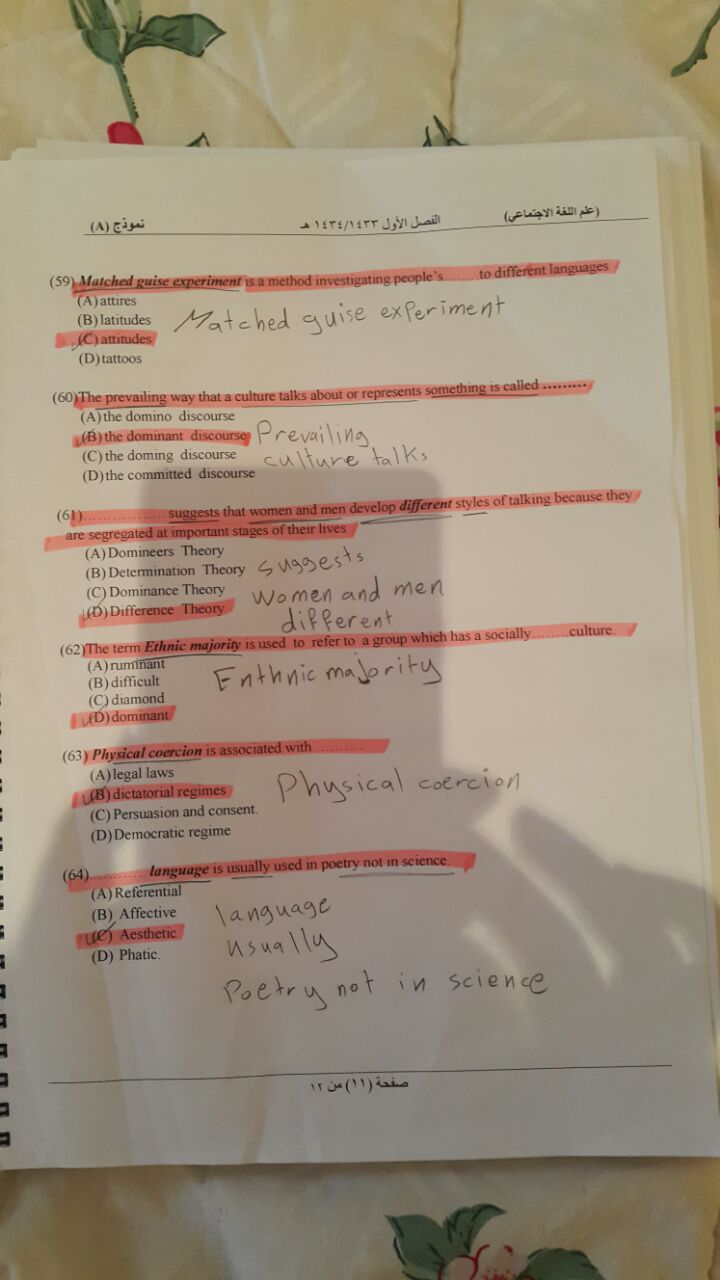 (علم اللغة الاجتماعي) الفصل الأول ١٤٣٤/١٤٣٣ هـ نموذج (A)
(59) Matched guise experiment is a method investigating people's........to different languages
(A) attires
(B) latitudes
(C) attitudes
(D) tattoos
Matched guise experiment
(60)The prevailing way that a culture talks about or represents something is called .........
(A) the domino discourse
(B) the dominant discourse
(C) the doming discourse
(D) the committed discourse
Prevailing
culture talks
(61)................. suggests that women and men develop different styles of talking because they
are segregated at important stages of their lives
(A) Domineers Theory
(B) Determination Theory
(C) Dominance Theory
(D) Difference Theory
suggests
women and men
different
(62)The term Ethnic majority is used to refer to a group which has a socially........culture.
(A) ruminant
(B) difficult
(C) diamond
(D) dominant
Enthnic majority
(63) Physical coercion is associated with ..........
(A) legal laws
(B) dictatorial regimes
(C) Persuasion and consent.
(D) Democratic regime
Physical coercion
(64)............ language is usually used in poetry not in science.
(A) Referential
(B) Affective
(C) Aesthetic
(D) Phatic.
language
usually
Poetry not in science
صفحة (١١) من ١٢